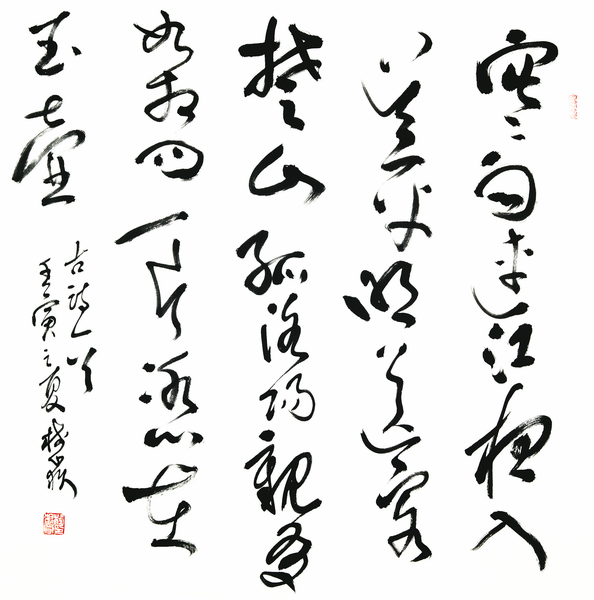 寒雨連江夜入
吳平明送客
楚山孤洛陽親友
如相問一片冰心在
玉壺
古詩一首
壬寅之夏